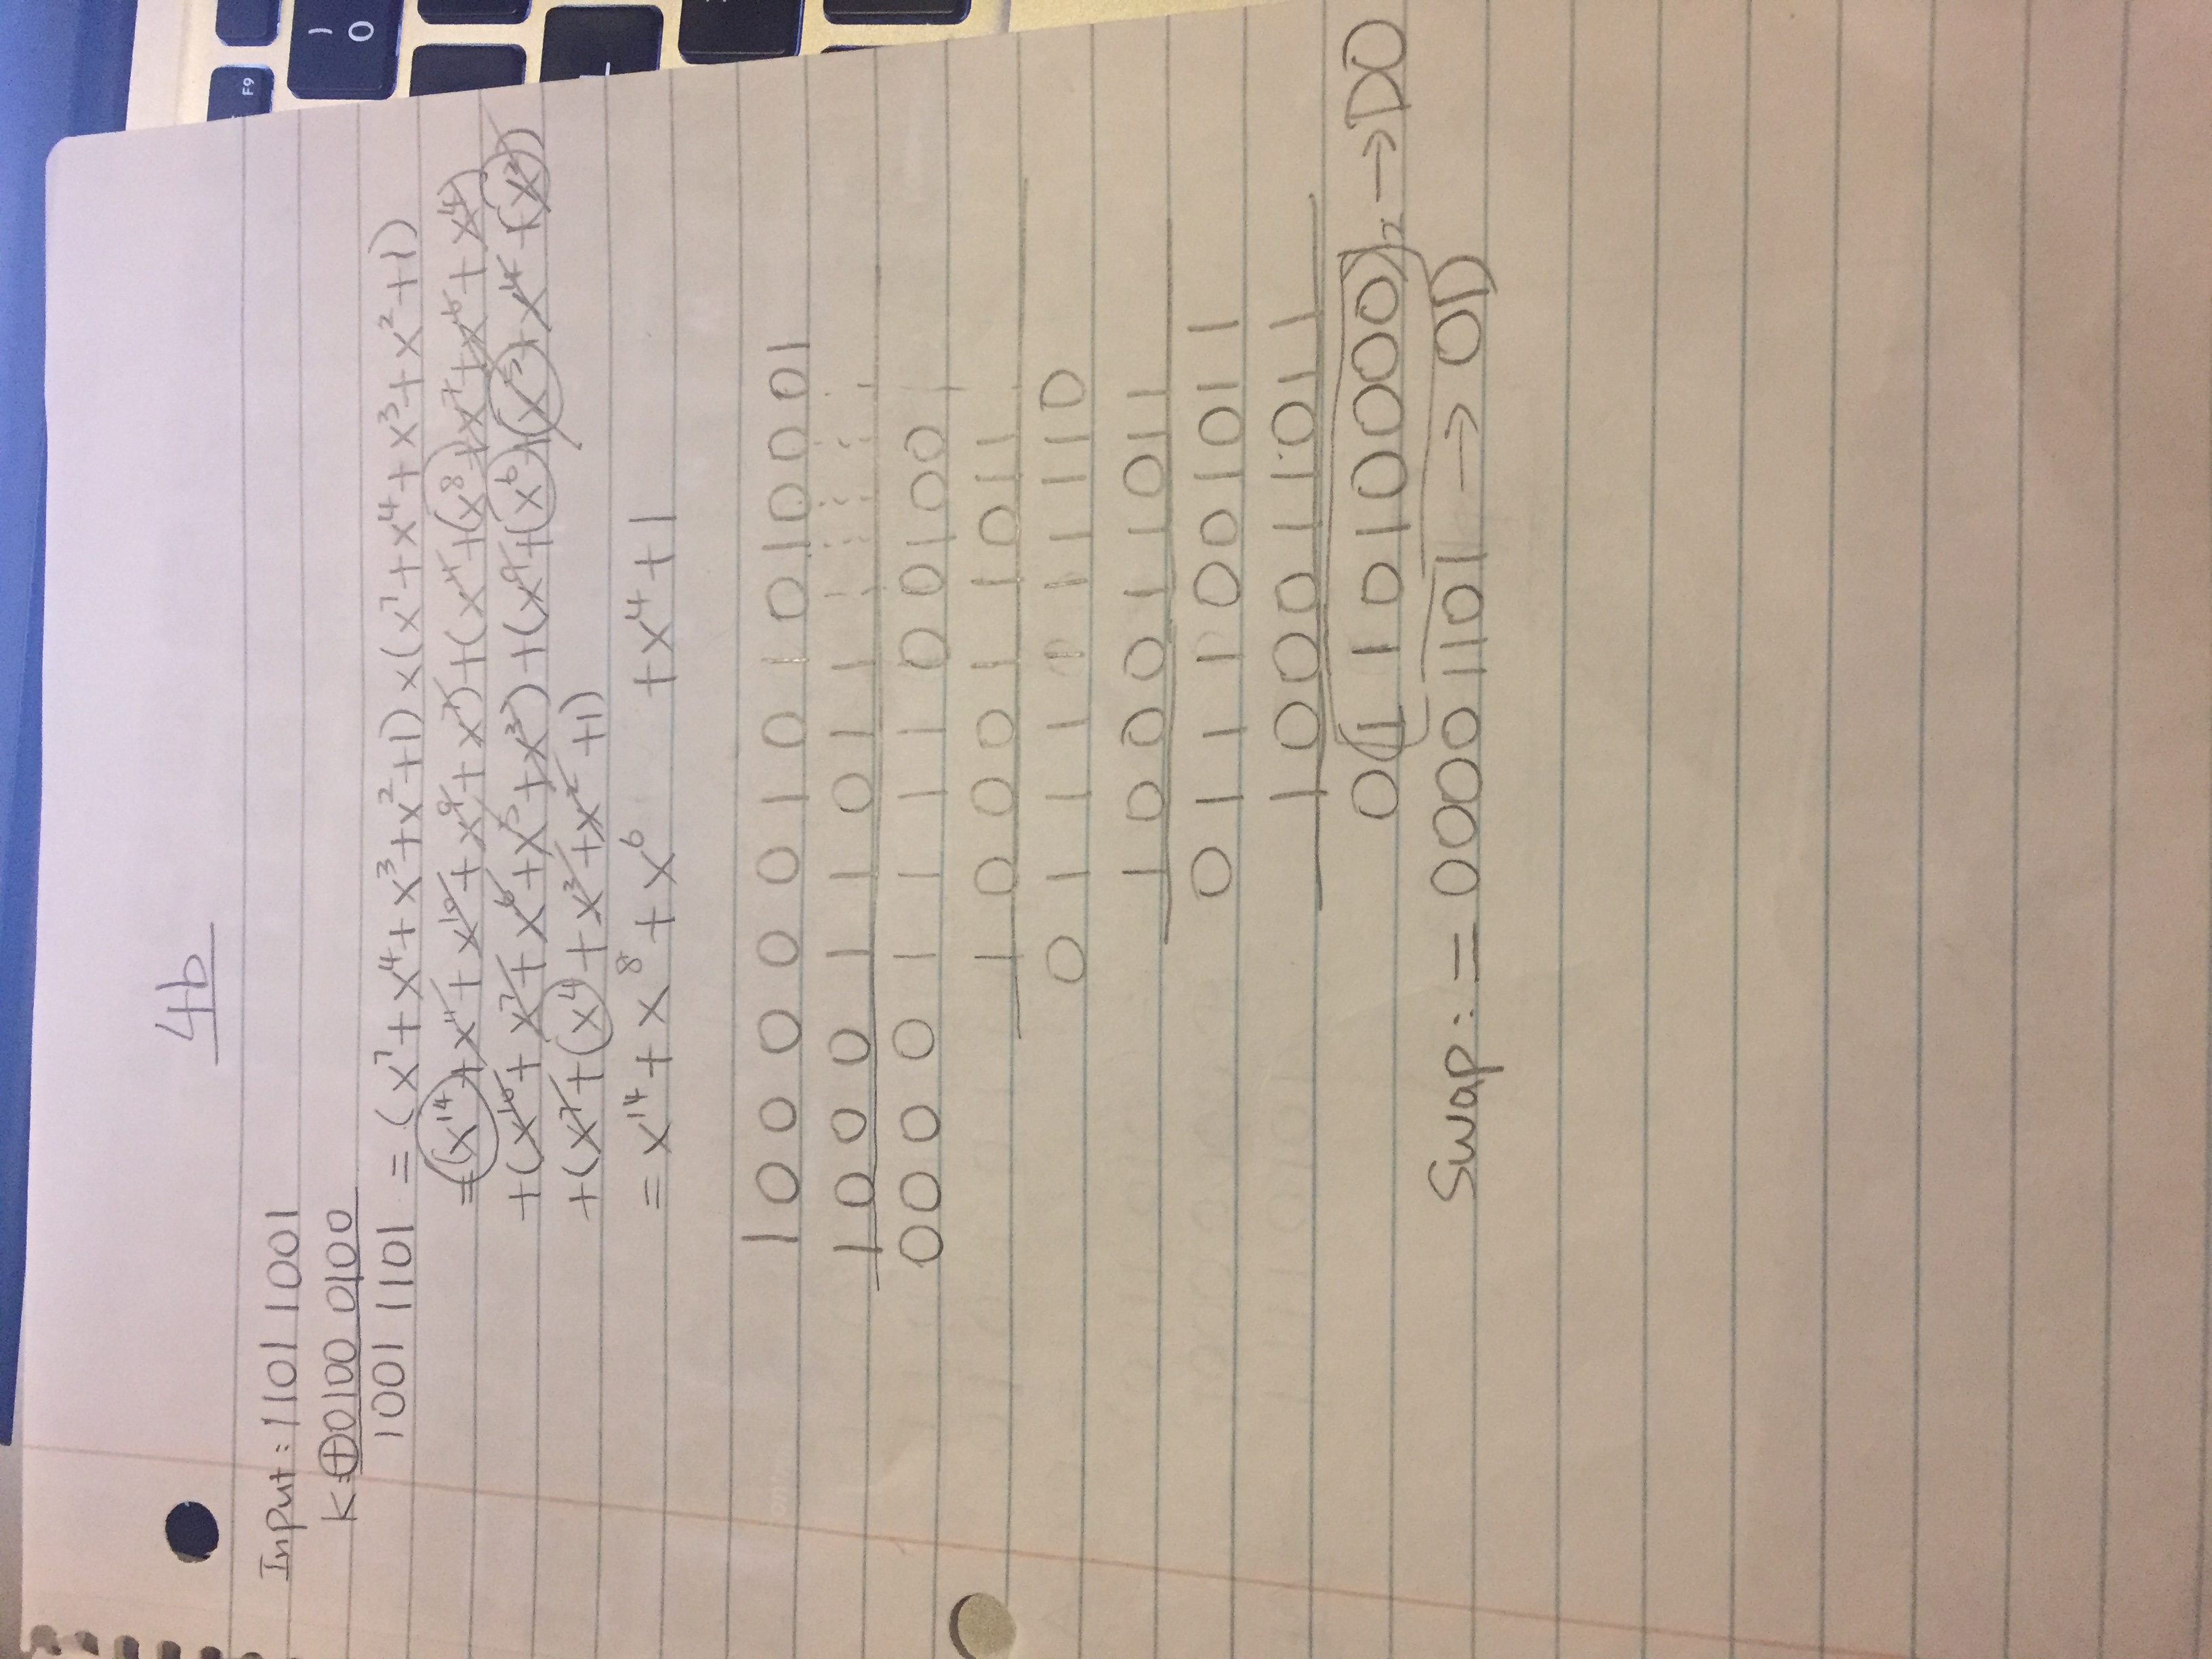 4b
Input: 1101 1001
K = ⊕ 0100 0100
1001 1101 = (x⁷+x⁴+x³+x²+1) x (x⁷+x⁴+x³+x²+1)
= (x¹⁴+x¹¹+x¹⁰+x⁹+x⁷)+(x¹¹+(x⁸+x⁷+x⁶+x⁴)
+(x¹⁰+x⁷+x⁶+x⁵+x³)+(x⁹+(x⁶+(x⁵+x⁴+(x²)
+(x⁷+(x⁴+x³+x²+1)
= x¹⁴+x⁸+x⁶ +x⁴+1
1 0 0 0 0 0 1 0 1 0 1 0 0 0 1
1 0 0 0 1 1 0 1 1
0 0 0 0 1 1 1 1 0 0 1 0 0
1 0 0 0 1 1 0 1 1
0 1 1 1 1 1 1 1 0
1 0 0 0 1 1 0 1 1
0 1 1 1 0 0 1 0 1 1
1 0 0 0 1 1 0 1 1
0 (1 1 0 1 0 0 0 0)₂ → D0
Swap: = 0000 1101 → 0D
F9
0